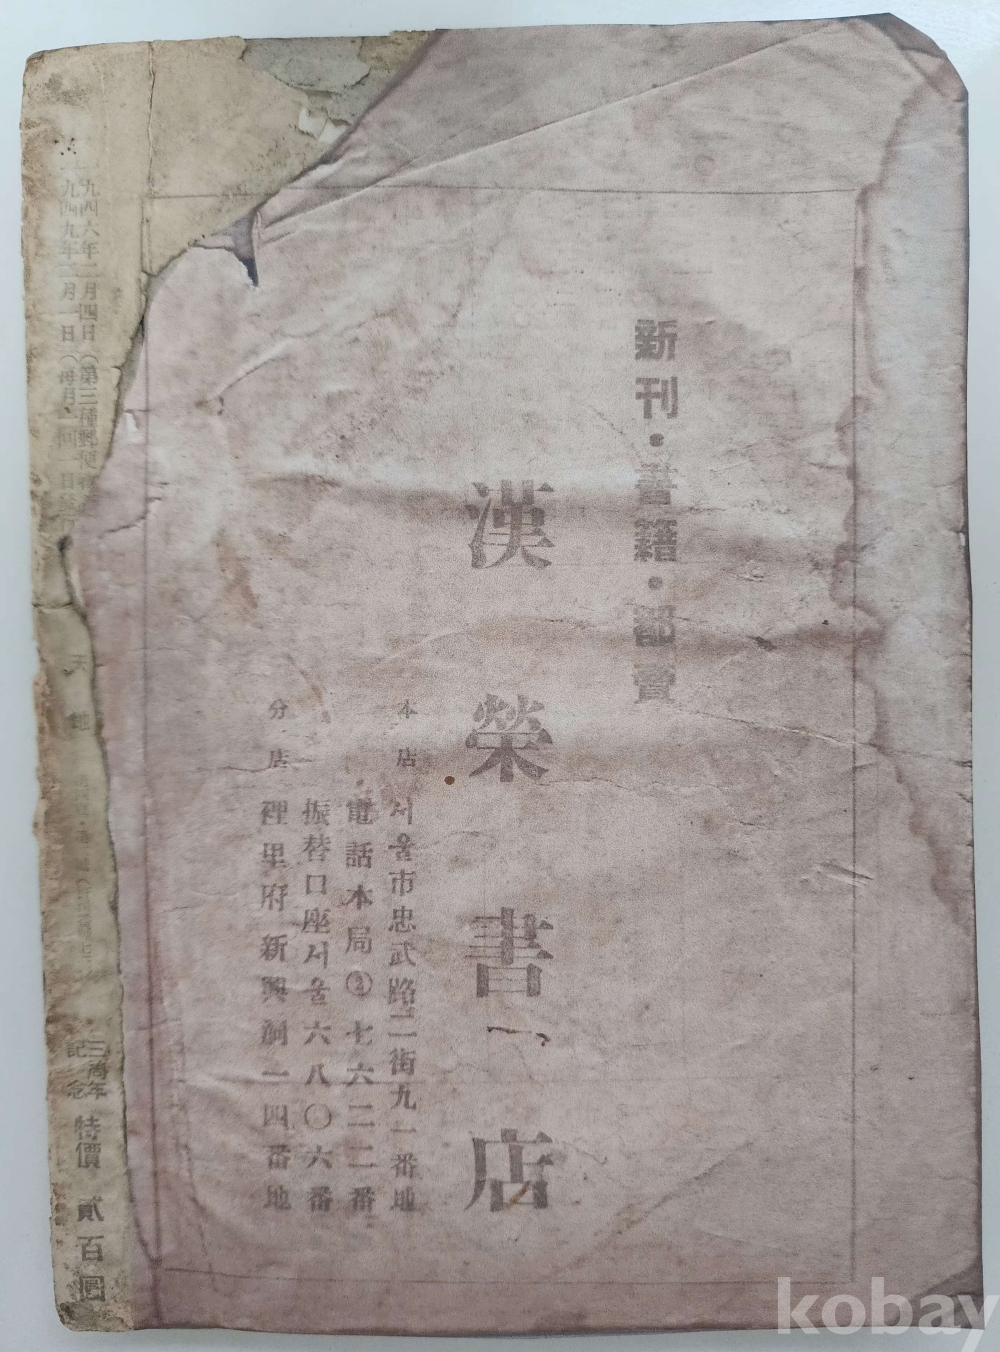 新刊·書籍·都賣
漢榮書店
本店 서울市忠武路二街九一番地
電話本局②七六二二番
振替口座서울六八〇六番
分店 裡里府新興洞一四番地
一九四六年二月四日(第三種郵便
一九四九年二月一日(每月一回一日發行
天地
三周年
記念
特價 貳百圓
kobay